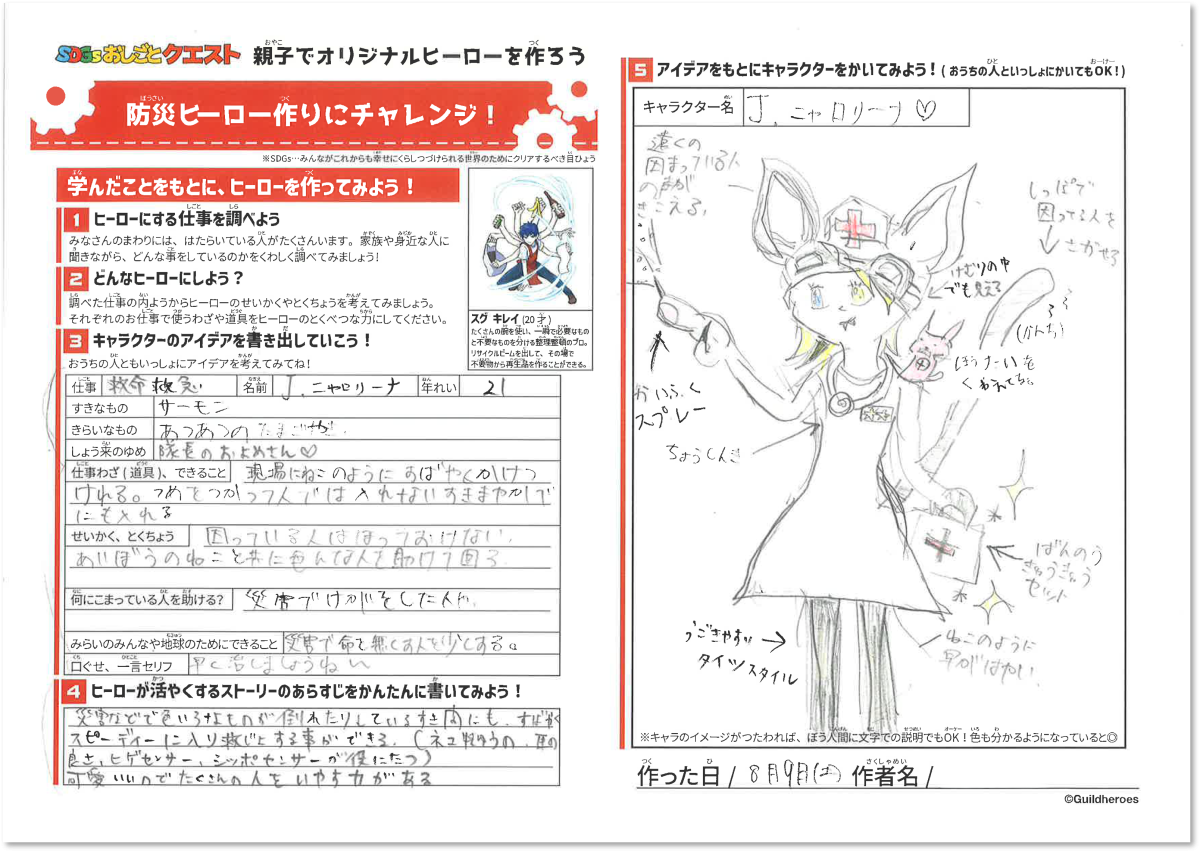 SDGsおしごとクエスト 親子でオリジナルヒーローを作ろう
防災ヒーロー作りにチャレンジ！
※SDGs…みんながこれからも幸せにくらしつづけられる世界のためにクリアするべき目ひょう
学んだことをもとに、ヒーローを作ってみよう！
1 ヒーローにする仕事を調べよう
みなさんのまわりには、はたらいている人がたくさんいます。家族や身近な人に
聞きながら、どんな事をしているのかをくわしく調べてみましょう！
2 どんなヒーローにしよう？
調べた仕事の内ようからヒーローのせいかくやとくちょうを考えてみましょう。
それぞれのお仕事で使うわざや道具をヒーローのとくべつな力にしてください。
3 キャラクターのアイデアを書き出していこう！
おうちの人ともいっしょにアイデアを考えてみてね！
スグ キレイ (20才)
たくさんの腕を使い、一瞬で必要なもの
と不要なものを分ける整理整頓のプロ。
リサイクルビームを出して、その場で
不要物から再生品を作ることができる。
仕事 救命救急 名前 J.ニャロリーナ 年れい 21
すきなもの サーモン
きらいなもの あつあつのたまごやき
しょう来のゆめ 隊長のおよめさん♡
仕事わざ（道具）、できること 現場にねこのようにすばやくかけつ
けれる。つめをつかって人では入れないすきまやかしで
にも入れる
せいかく、とくちょう 困っている人はほっておけない。
あいぼうのねこと共に色んな人を助けて回る
何にこまっている人を助ける？ 災害でけがをした人
みらいのみんなや地球のためにできること 災害で命を無くす人を少とする。
口ぐせ、一言セリフ 早く治しましょうねぃ
4 ヒーローが活やくするストーリーのあらすじをかんたんに書いてみよう！
災害などで色いろなものが倒れたりしているすき間にも、すばやく
スピーディーに入り救じょする事ができる。（ネコ特ゆうの、耳の
良さ、ヒゲセンサー、シッポセンサーが役にたつ）
可愛いいのでたくさんの人をいやす力がある
5 アイデアをもとにキャラクターをかいてみよう！(おうちの人といっしょにかいてもOK！)
キャラクター名 J.ニャロリーナ♡
遠くの
困まっている人
の声が
きこえる。
しっぽで
困ってる人を
さがせる
けむりの中
でも見える
(かんち)
ほうたいを
くわえてる
かいふく
スプレー
ちょうしんき
ばんのう
きゅうきゅう
セット
うごきやすい
タイツスタイル
ねこのように
早がはやい
※キャラのイメージがつたわれば、ぼう人間に文字での説明でもOK！色も分かるようになっていると◎
作った日/ 8月9日(土) 作者名/
©Guildheroes